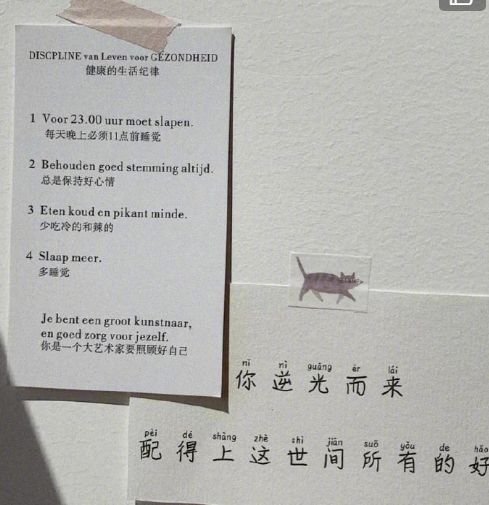 DISCPLINE van Leven voor GEZONDHEID
健康的生活纪律
1 Voor 23.00 uur moet slapen.
每天晚上必须11点前睡觉
2 Behouden goed stemming altijd.
总是保持好心情
3 Eten koud en pikant minde.
少吃冷的和辣的
4 Slaap meer.
多睡觉
Je bent een groot kunstnaar,
en goed zorg voor jezelf.
你是一个大艺术家要照顾好自己
nǐ nì guāng ér lái
你逆光而来
pèi dé shàng zhè shì jiān suǒ yǒu de hǎo
配得上这世间所有的好